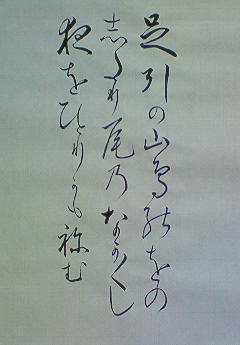 足引の山鳥能をの
志多り尾乃な可〱し
夜をひとりか毛祢む